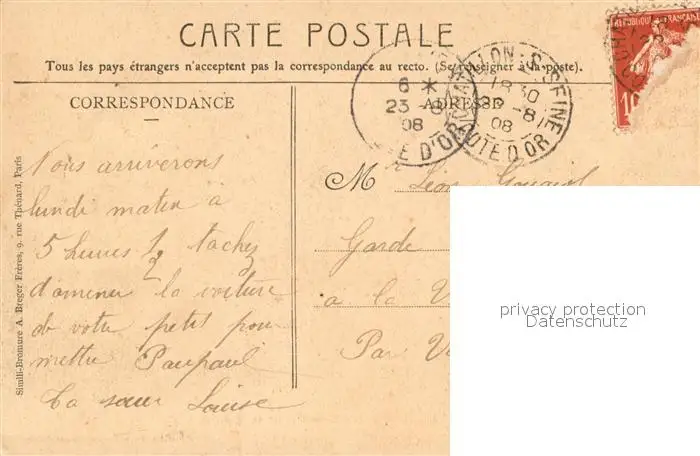 CARTE POSTALE
Tous les pays étrangers n'acceptent pas la correspondance au recto. (Se renseigner à la poste).
CORRESPONDANCE
ADRESSE
REPUBLIQUE FRANÇAISE
10
6 *
23 -8
08
CÔTE D'OR
CHATILLON-S-SEINE
18 30
-8
08
CÔTE D'OR
Simili-Bromure A. Breger Frères, 9, rue Thénard, Paris
Nous arriverons
lundi matin à
5 heures 1/2 tachez
d'amener la voiture
de votre petit pour
mettre Paupaul
Ta sœur Louise
M Léon
Garde
à la V
Par V
privacy protection
Datenschutz